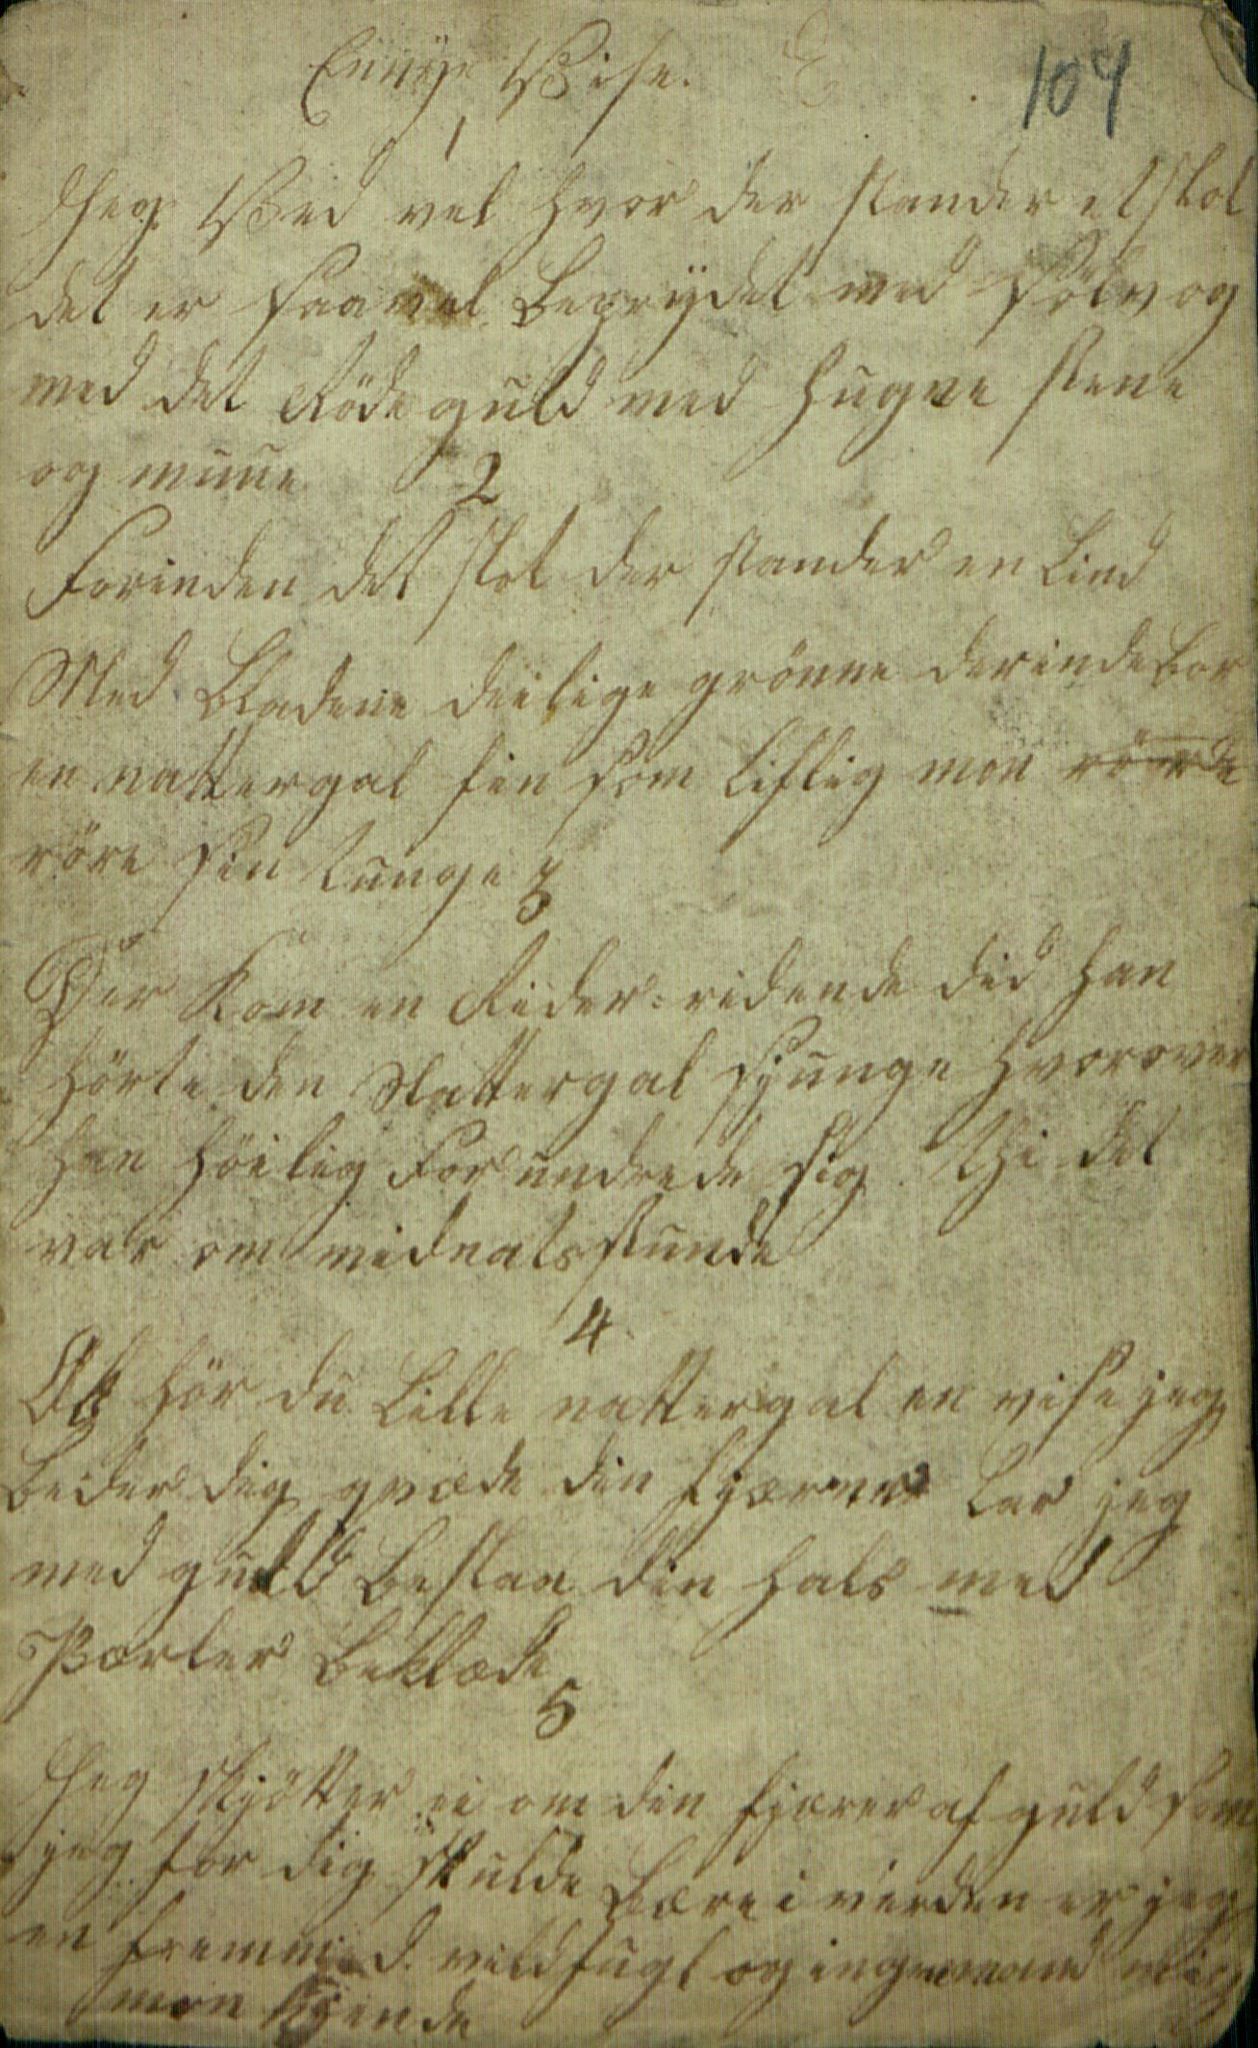 En nÿe Viise.
104
1
Jeg Veed vel hvor der stander et slot
det er saavel Beprydet med sølv og
med det Røde guld med hugne stene
og muue
2
Forinden det slot der stander en Lind
Med Bladene deilige grönne derinde Bor
en nattergal fin som liflig mon
röre sin tunge
3
Der kom en Rider ridende did han
hörte den Nattergal sjunge hvorover
han höilig forundrede sig. Thi det
var om midnats stunde
4
Ak hör du lille nattergal en vise jeg
beder dig qvæde din fjærer lar jeg
med guld beslaa din hals med
Pærler beklæde
5
Jeg skjötter ei om din fjærer af guld som
jeg for dig skulde bære i verden er jeg
en fremmed vildfugl og ingen mand mig
mon kjende